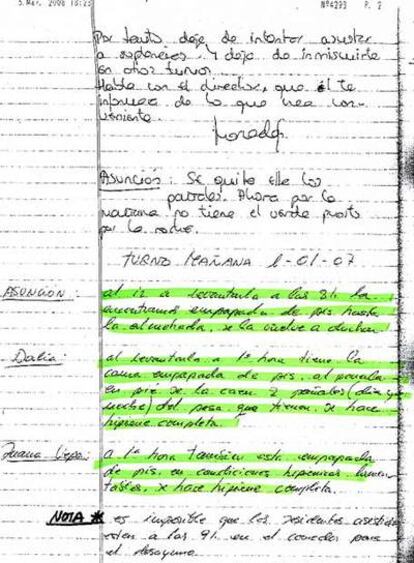 5.Mar. 2008 18:23 Nº4293 P. 2
Por tanto deja de intentar asustar
a suplencias. Y deja de inmiscuirte
en otros turnos.
Habla con el director, que él te
informará de lo que crea con-
veniente.
Asunción: Se quita ella los
pañales. Ahora por la
mañana no tiene el verde puesto
por la noche.
TURNO MAÑANA 2-01-07
ASUNCIÓN: al ir a levantarla a las 8h la
encontramos empapada de pis hasta
la almohada, se la vuelve a duchar.
Dalia: al levantarla a 1ª hora tiene la
cama empapada de pis, al ponerla
en pie se le caen 2 pañales (día y
noche) del peso que tienen. Se hace
higiene completa.
Juana: a 1ª hora también está empapada
de pis, en condiciones higiénicas lamen-
tables, se hace higiene completa.
NOTA * es imposible que los residentes asistidos
estén a las 9h en el comedor para
el desayuno.